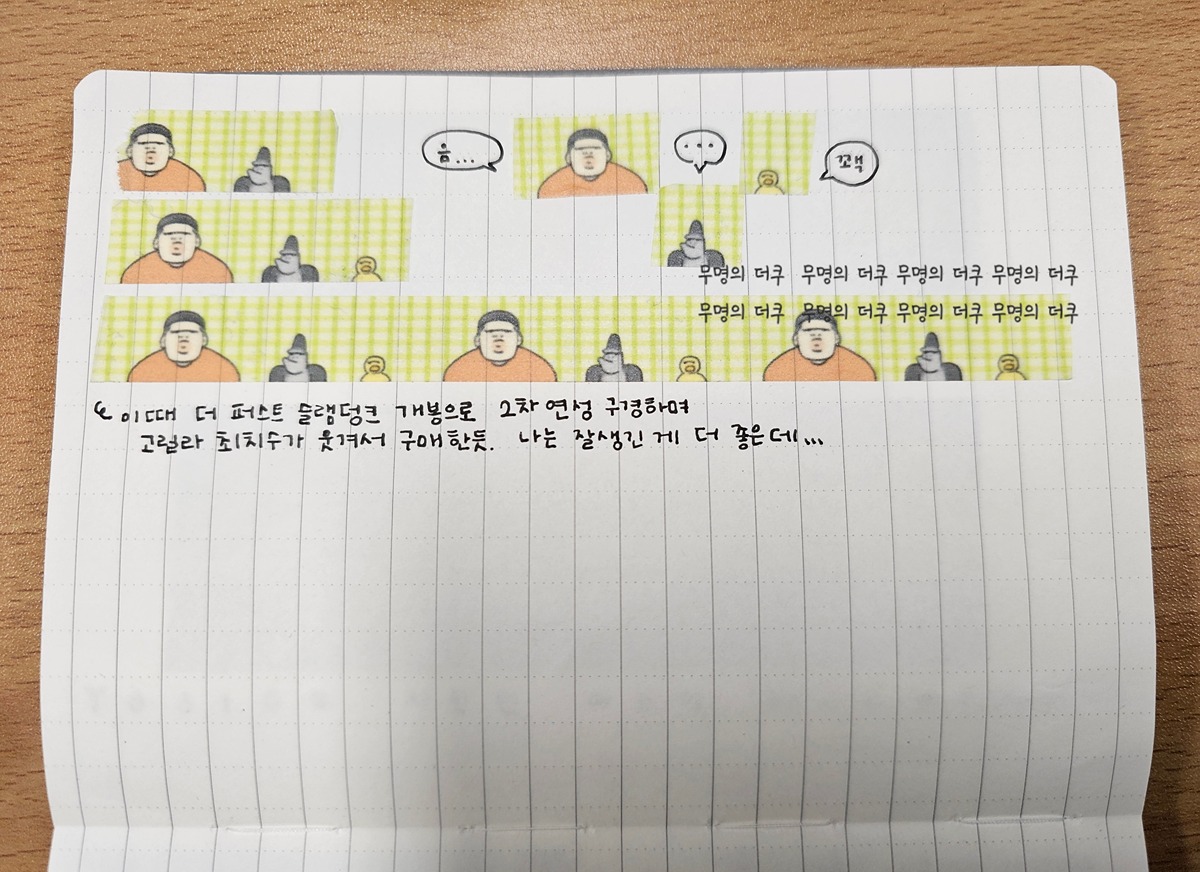 음...
...
꼬액
무명의 더쿠 무명의 더쿠 무명의 더쿠 무명의 더쿠
무명의 더쿠 무명의 더쿠 무명의 더쿠 무명의 더쿠
이때 더 퍼스트 슬램덩크 개봉으로 2차 연성 구경하며
고릴라 최치수가 웃겨서 구매한듯. 나는 잘생긴 게 더 좋은데...